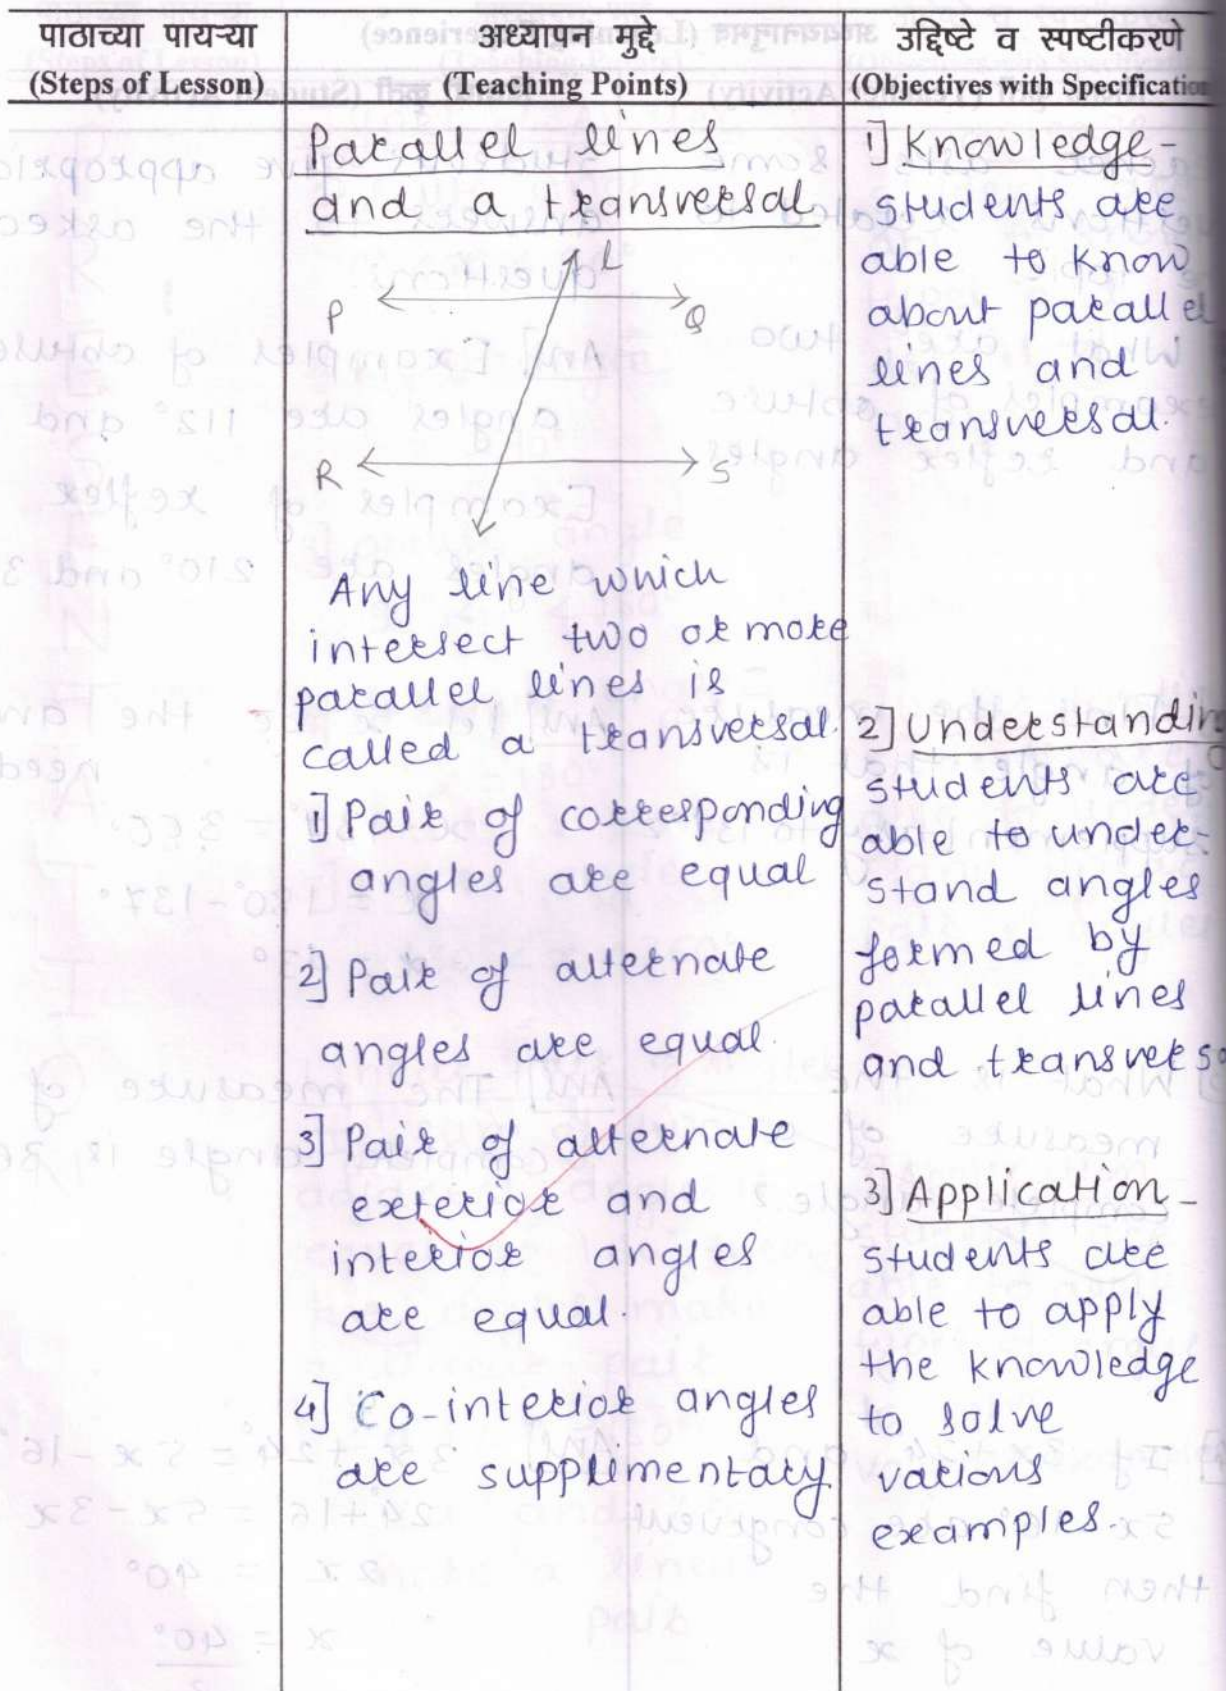 पाठाच्या पायऱ्या
(Steps of Lesson)
अध्यापन मुद्दे
(Teaching Points)
उद्दिष्टे व स्पष्टीकरणे
(Objectives with Specification
Parallel lines
and a transversal
L
P
Q
R
S
Any line which
intersect two or more
parallel lines is
called a transversal.
1] Pair of corresponding
angles are equal
2] Pair of alternate
angles are equal.
3] Pair of alternate
exterior and
interior angles
are equal.
4] Co-interior angles
are supplimentary
1] Knowledge -
students are
able to know
about parallel
lines and
transversal.
2] Understanding
students are
able to under-
stand angles
formed by
parallel lines
and transversa
3] Application -
students are
able to apply
the knowledge
to solve
various
examples.